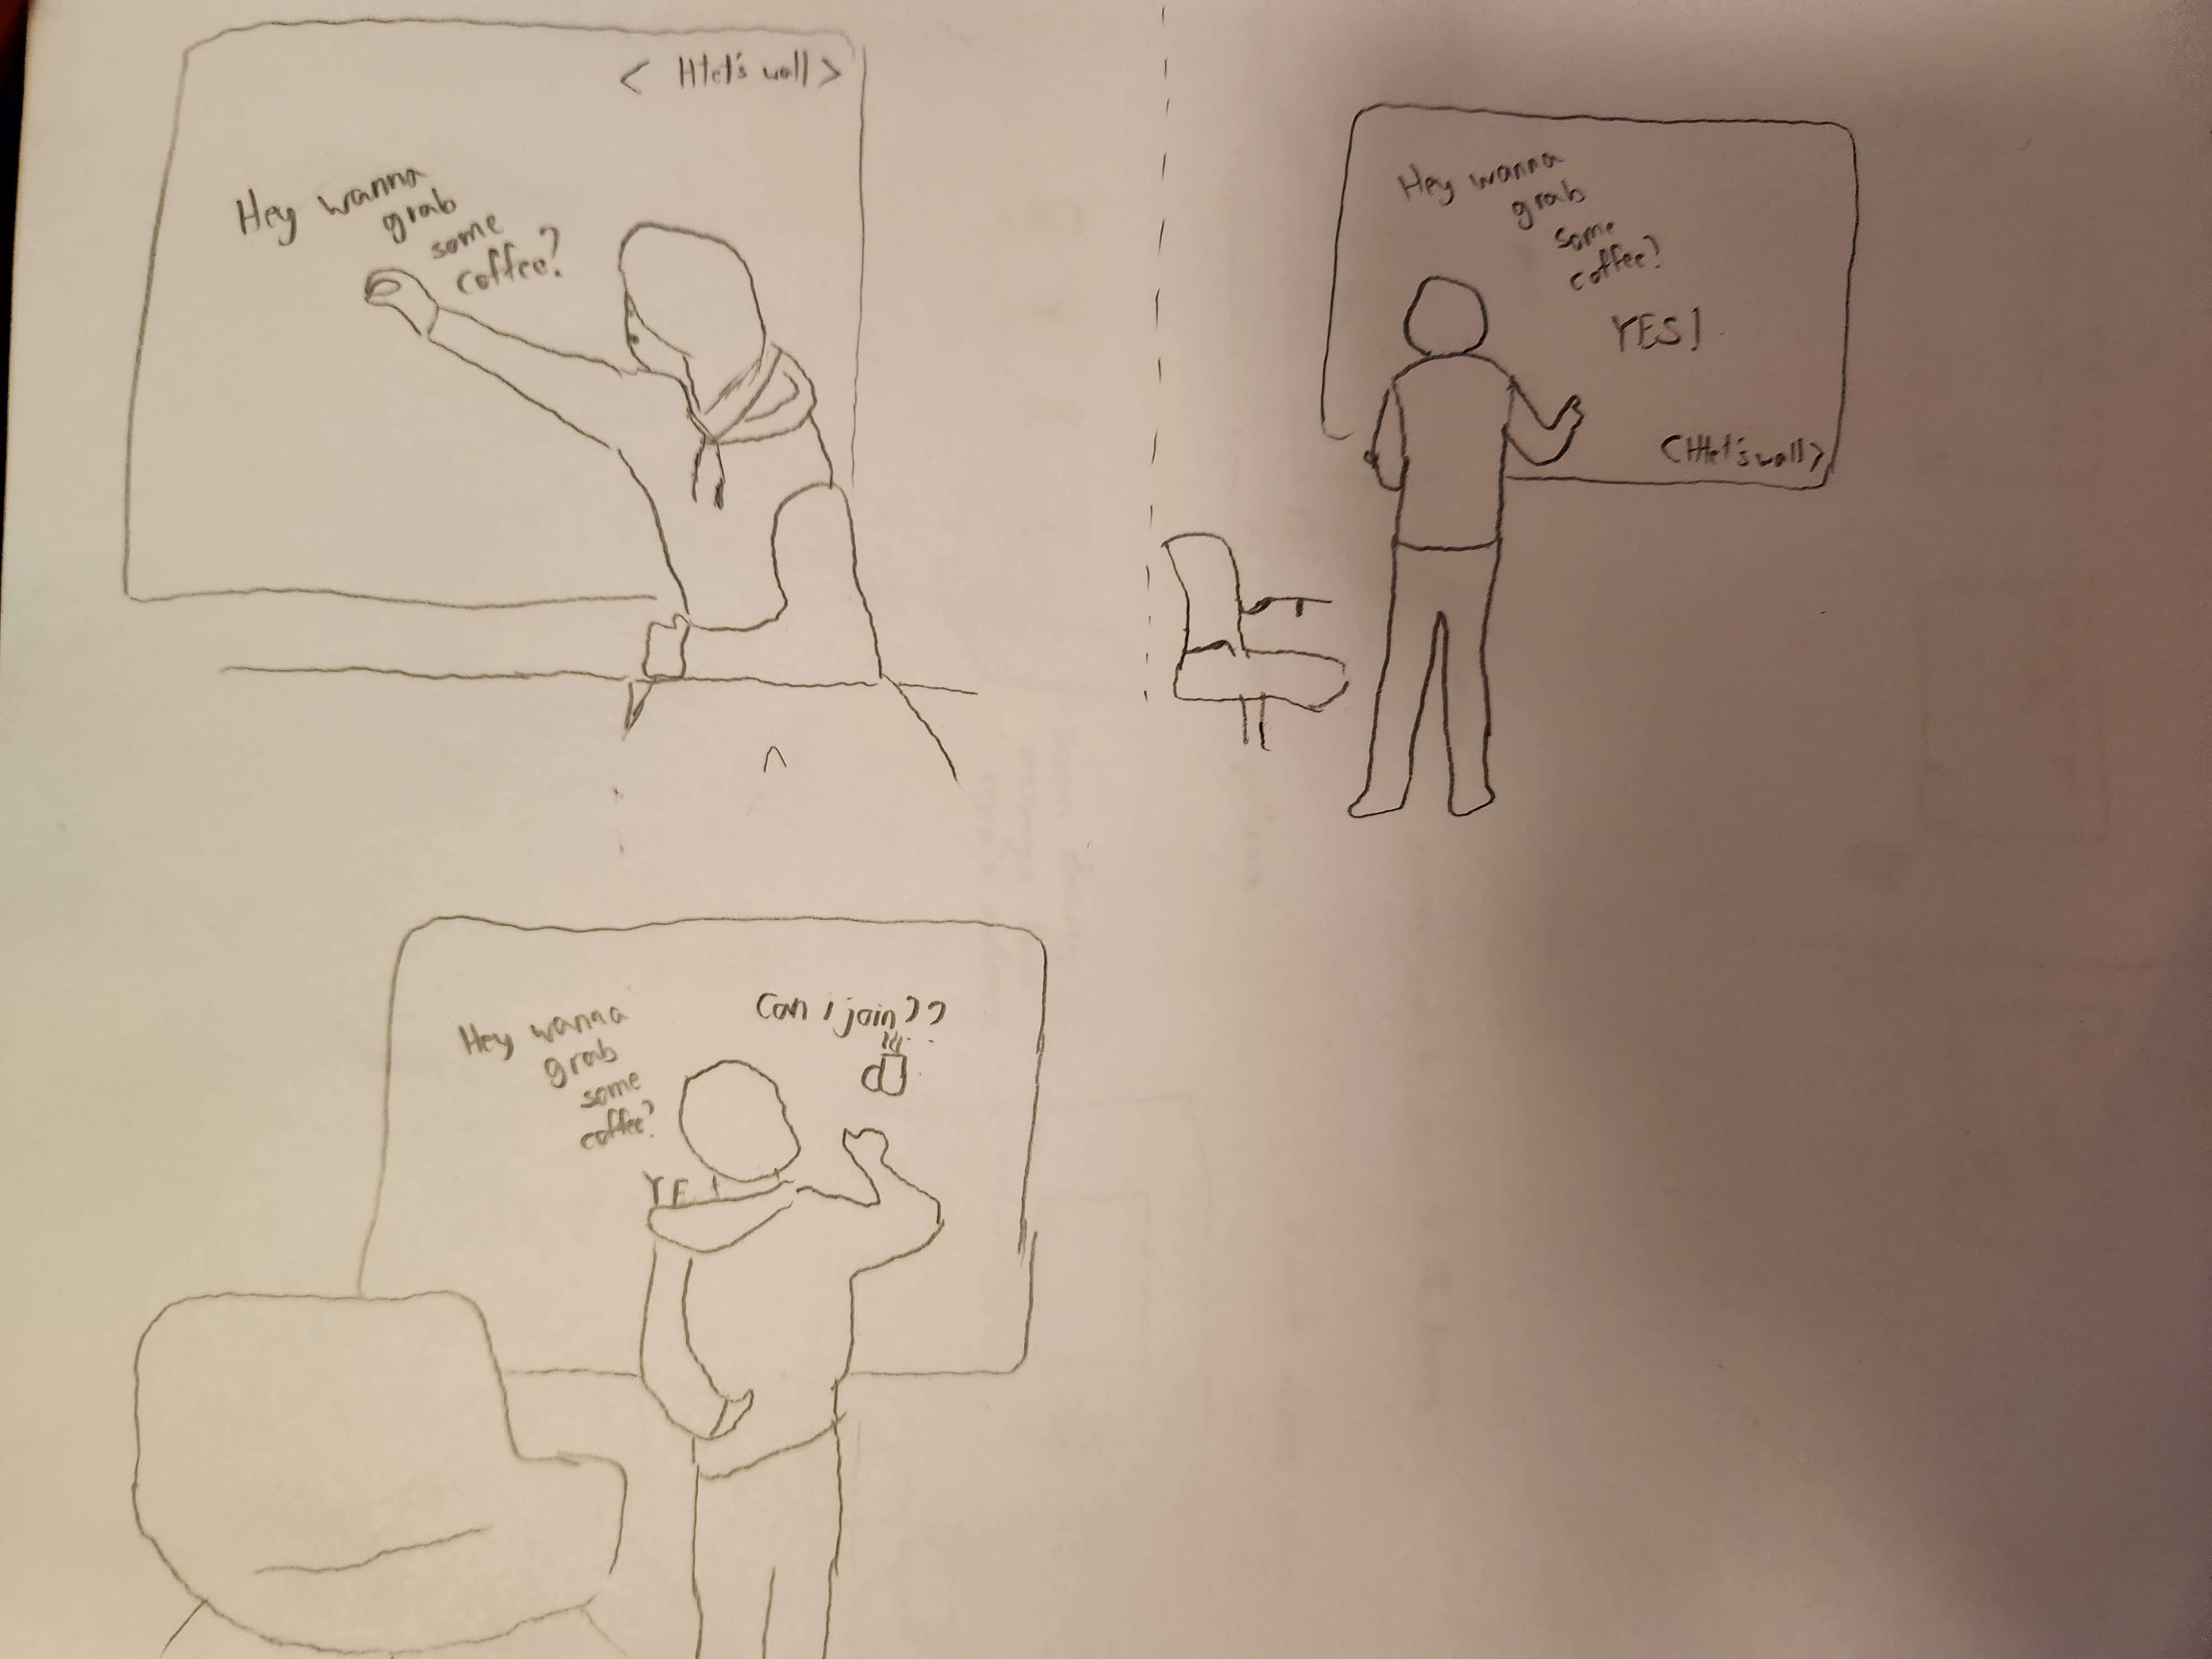 < Htet's wall >
Hey wanna
grab
some
coffee?
Hey wanna
grab
some
coffee?
YES!
<Htet's wall>
Can i join??
Hey wanna
grab
some
coffee?
YE